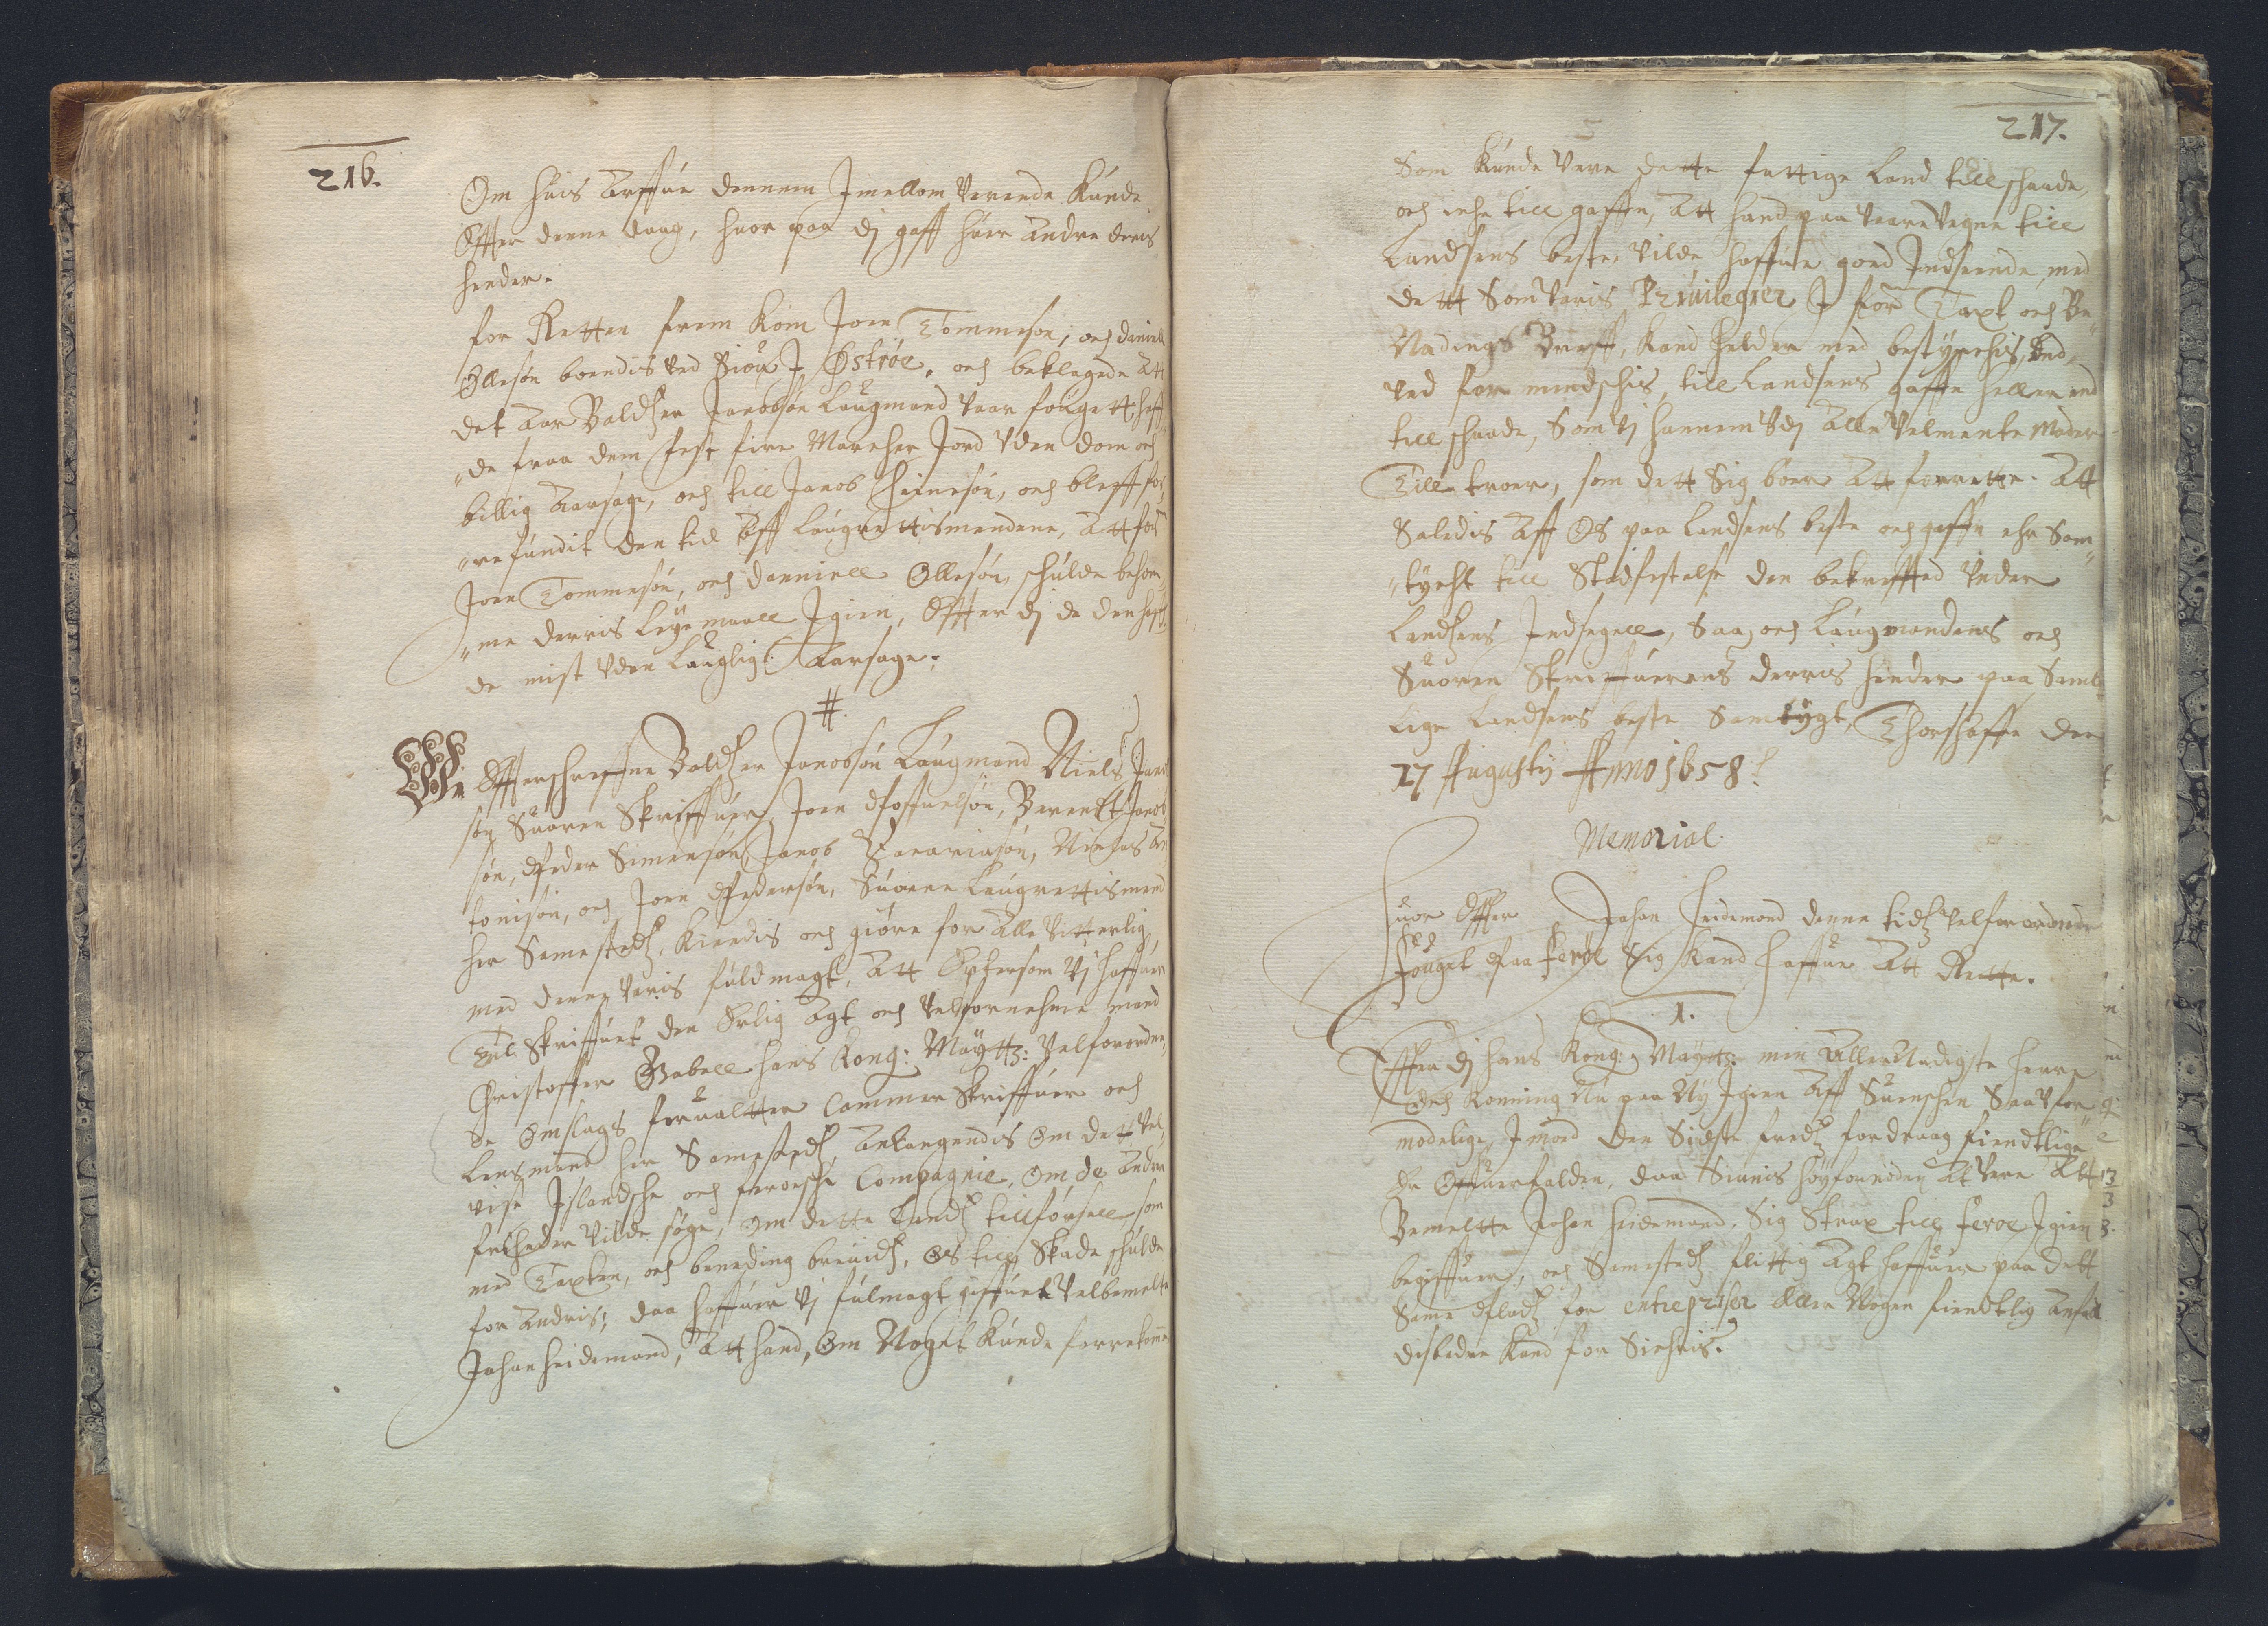 216.
Om huis Arffue dennem Imellom Verende kunde
Effter denne daag, huor paa dj gaff huer andre deris
hender.
for Retten frem kom Joen Tommesøn, och daniell
Ollesøn boendis ved Siouf I Østrøe, och beklagede att
det aar Baldtzer Jacobsøn Laugmand vaar fouget, haff
"de fraa dem fest fire Marcher Jord vden dom och
billig aarsage, och till Jacob Heinesøn, och bleff for
"refundit den tid aff Laugrettismendene, att for:ne
Joen Tommesøn, och danniell Ollesøn, schulde bekom
"me derris Leyemaall Igien, Effter dj de den haff
de mist vden Lauglig Aarsage.
#
Wj Effterschreffne Baldtzer Jacobsøn Laugmand Niels Jacob
søn Suoren Skriffuer, Joen Poffuelsøn, Berent Jacob
søn, Peder Simensøn, Jacob Zacariasøn, Niclas An
tonisøn, och Joen Pedersøn, Suorne Laugrettismend
her Samestedtz, Kiendis och giøre for alle Vitterlig,
med denne voris fuldmagt, att Eptersom vj haffuer
Til Skriffuet den Erlig agt och velfornehme mand
Christoffer Gabell hans Kong: Maytts: Velforordne,
de Omslags foruallter Cammer Skriffuer och
Lensmand her Samestedtz, anlangendis om dett vel
vise Islandsche och feroesche Compagnie, om de andre
friheder vilde søge, om dette Landtz tillførsell som
med Taxten, och benading breuidtz, os till Skade schulde
for andris; daa haffuer vj fulmagt giffuet velbemelte
Johan heidemand, att hand, om Noget kunde forrekomme
217.
Som kunde vere dette fattige Land till schaade,
och iche till gaffn, att hand paa vaare vegne till
Landsens beste, vilde haffue goed Indseende, med
dett Som voris Privilegier I for Taxt och Be"
Nadings Breff, kand heldre med bestyrchis, End,
ved for mindschis, till Landsens gaffn heller end
till schaade, Som vj hannem vdj alle velmente Maader
Till troer, som dett Sig bør att forrette. Att
Saledis aff Os paa Landsens beste och gaffn ehr Sam"
"tycht till Stadfestelse den bekrefftted vnder
Landsens Indsegell, Saa och Laugmandens och
Suoren Skriffuerens derris hender paa Samt
lige Landsens beste Samtygt, Thorshaffn den
27 Augustij Anno 1658
Memorial
Huor Effter Johan Heidemand denne tidtz velforordnede
fouget paa feröe Sig kand haffue att Rette.
1.
Effter dj hans Kong: Maytts: min allernadigste herre
och Konning Nu paa Ny Igien aff Suenschen Saa vfor"
modelige, Imod den Sidste fredtz fordraag fiendtlige
de Offuerfalden, daa Siunis høyfornøden at vere att
Bemeltte Johan heidemand, Sig Strax till feroe Igien
begiffuer, och Samestedtz flittig agt haffuer paa dett
Same Pladtz for entrepriser eller Nogen fiendtlig anfald
disbedre kand for Sichris.